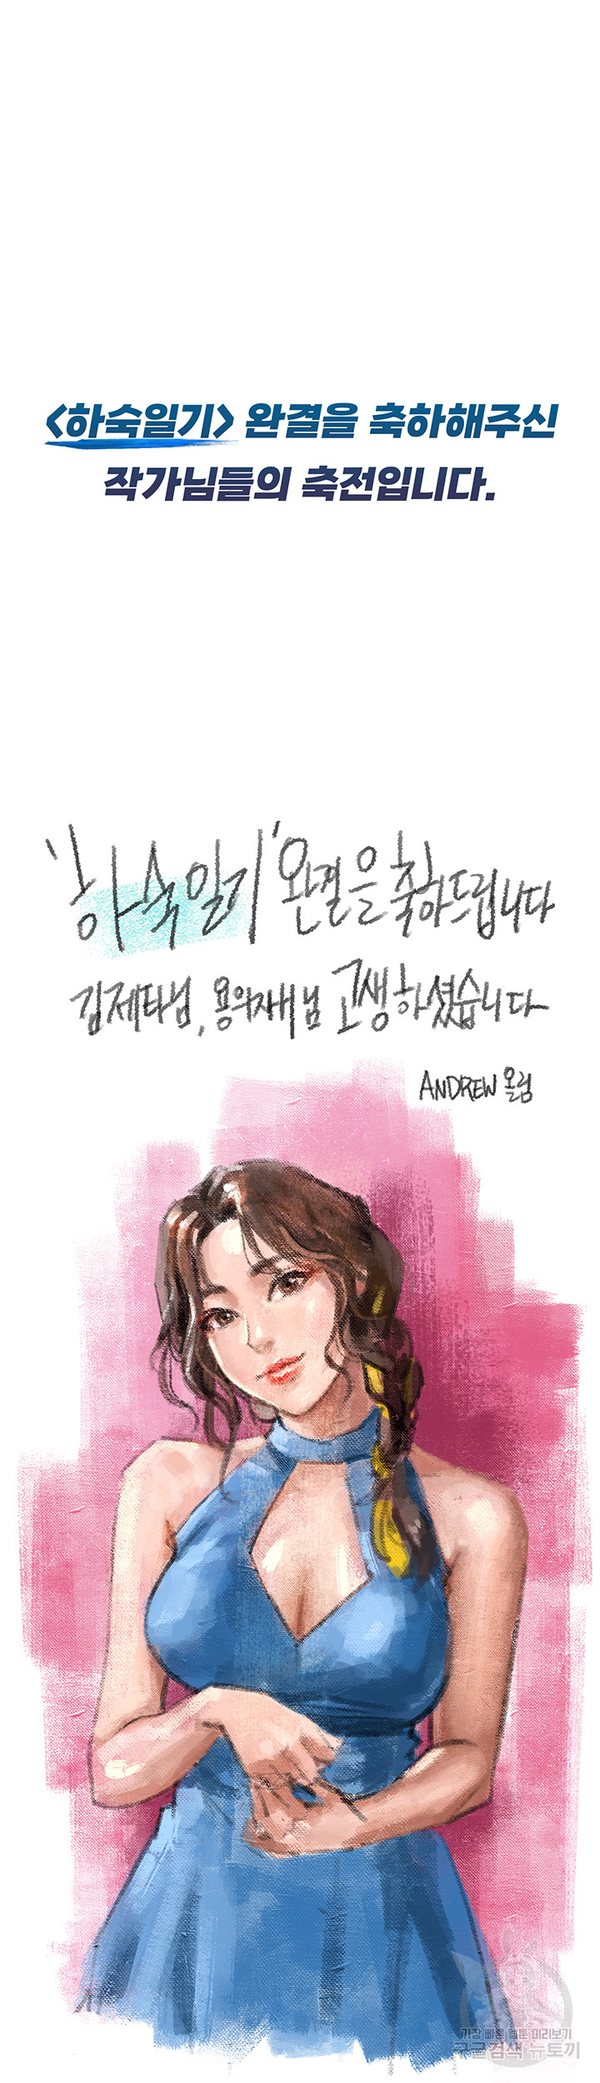 <하숙일기> 완결을 축하해주신
작가님들의 축전입니다.
'하숙일기' 완결을 축하드립니다
김제타님, 용의자B님 고생하셨습니다
ANDREW 올림
가장 빠른 웹툰 미리보기
구글검색 뉴토끼